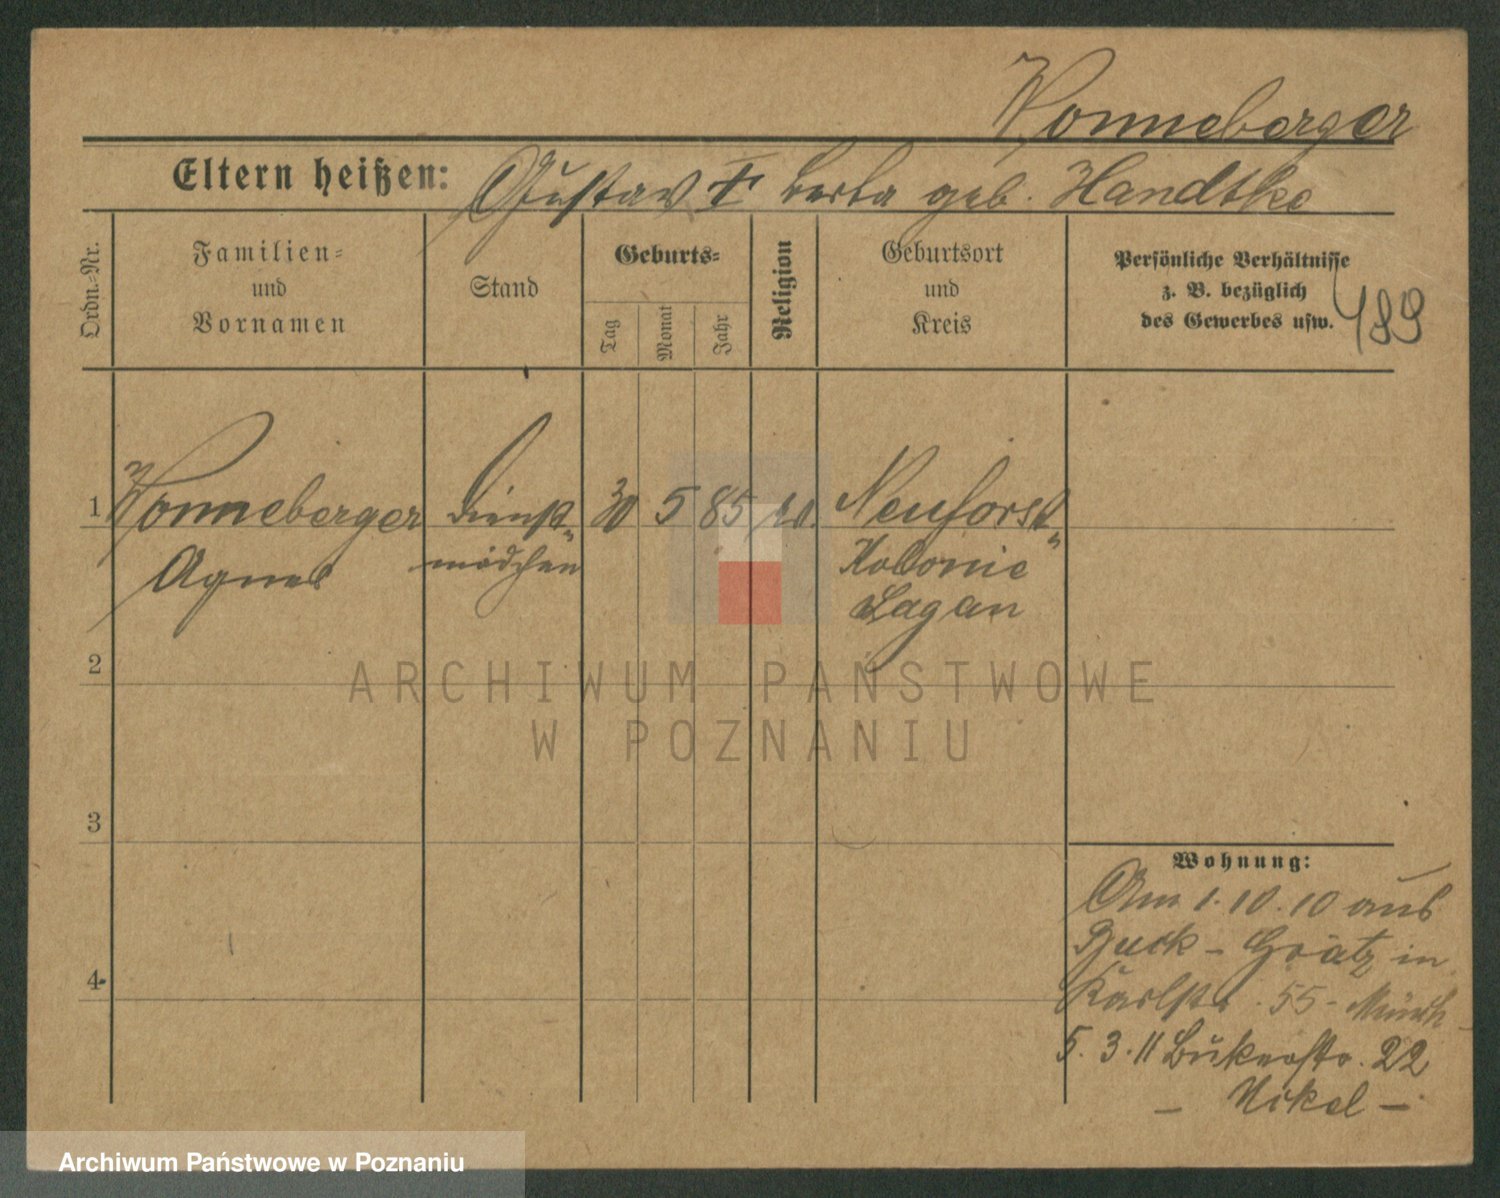 Wonneberger
Eltern heißen: Gustav † Berta geb. Handtke
Ordn.-Nr.
Familien-
und
Vornamen
Stand
Geburts-
Tag
Monat
Jahr
Religion
Geburtsort
und
Kreis
Persönliche Verhältnisse
z. B. bezüglich
des Gewerbes usw.
489
1 Wonneberger Dienst- 30 5 85 Neuforst-
Agnes mädchen Kolonie
Sagan
2
3
4
Wohnung:
Am 1.10.10 aus
Buck - Grätz in
Karlstr. 55 -
5.3.11 Bukerstr. 22
- Nikel -
ARCHIWUM PAŃSTWOWE
W POZNANIU
Archiwum Państwowe w Poznaniu